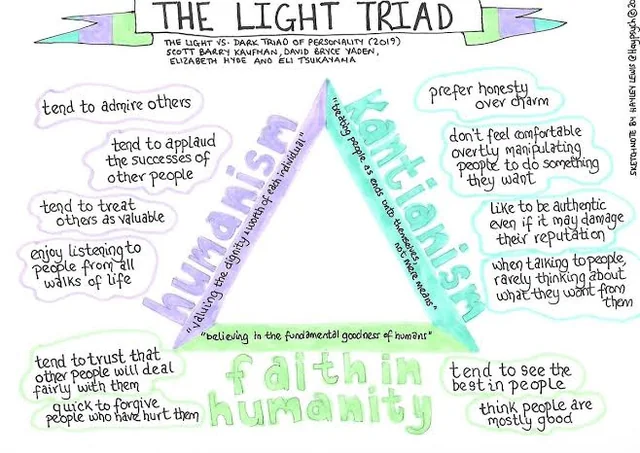 THE LIGHT TRIAD
THE LIGHT VS. DARK TRIAD OF PERSONALITY (2019)
SCOTT BARRY KAUFMAN, DAVID BRYCE YADEN,
ELIZABETH HYDE AND ELI TSUKAYAMA
tend to admire others
tend to applaud
the successes of
other people
tend to treat
others as valuable
enjoy listening to
people from all
walks of life
humanism
"valuing the dignity & worth of each individual"
Kantianism
"treating people as ends unto themselves,
not mere means"
prefer honesty
over charm
don't feel comfortable
overtly manipulating
people to do something
they want
like to be authentic
even if it may damage
their reputation
when talking to people,
rarely thinking about
what they want from
them
"believing in the fundamental goodness of humans"
faith in
humanity
tend to trust that
other people will deal
fairly with them
quick to forgive
people who have hurt them
tend to see the
best in people
think people are
mostly good
SKETCHNOTE BY HAYLEY LEWIS @Haypsych